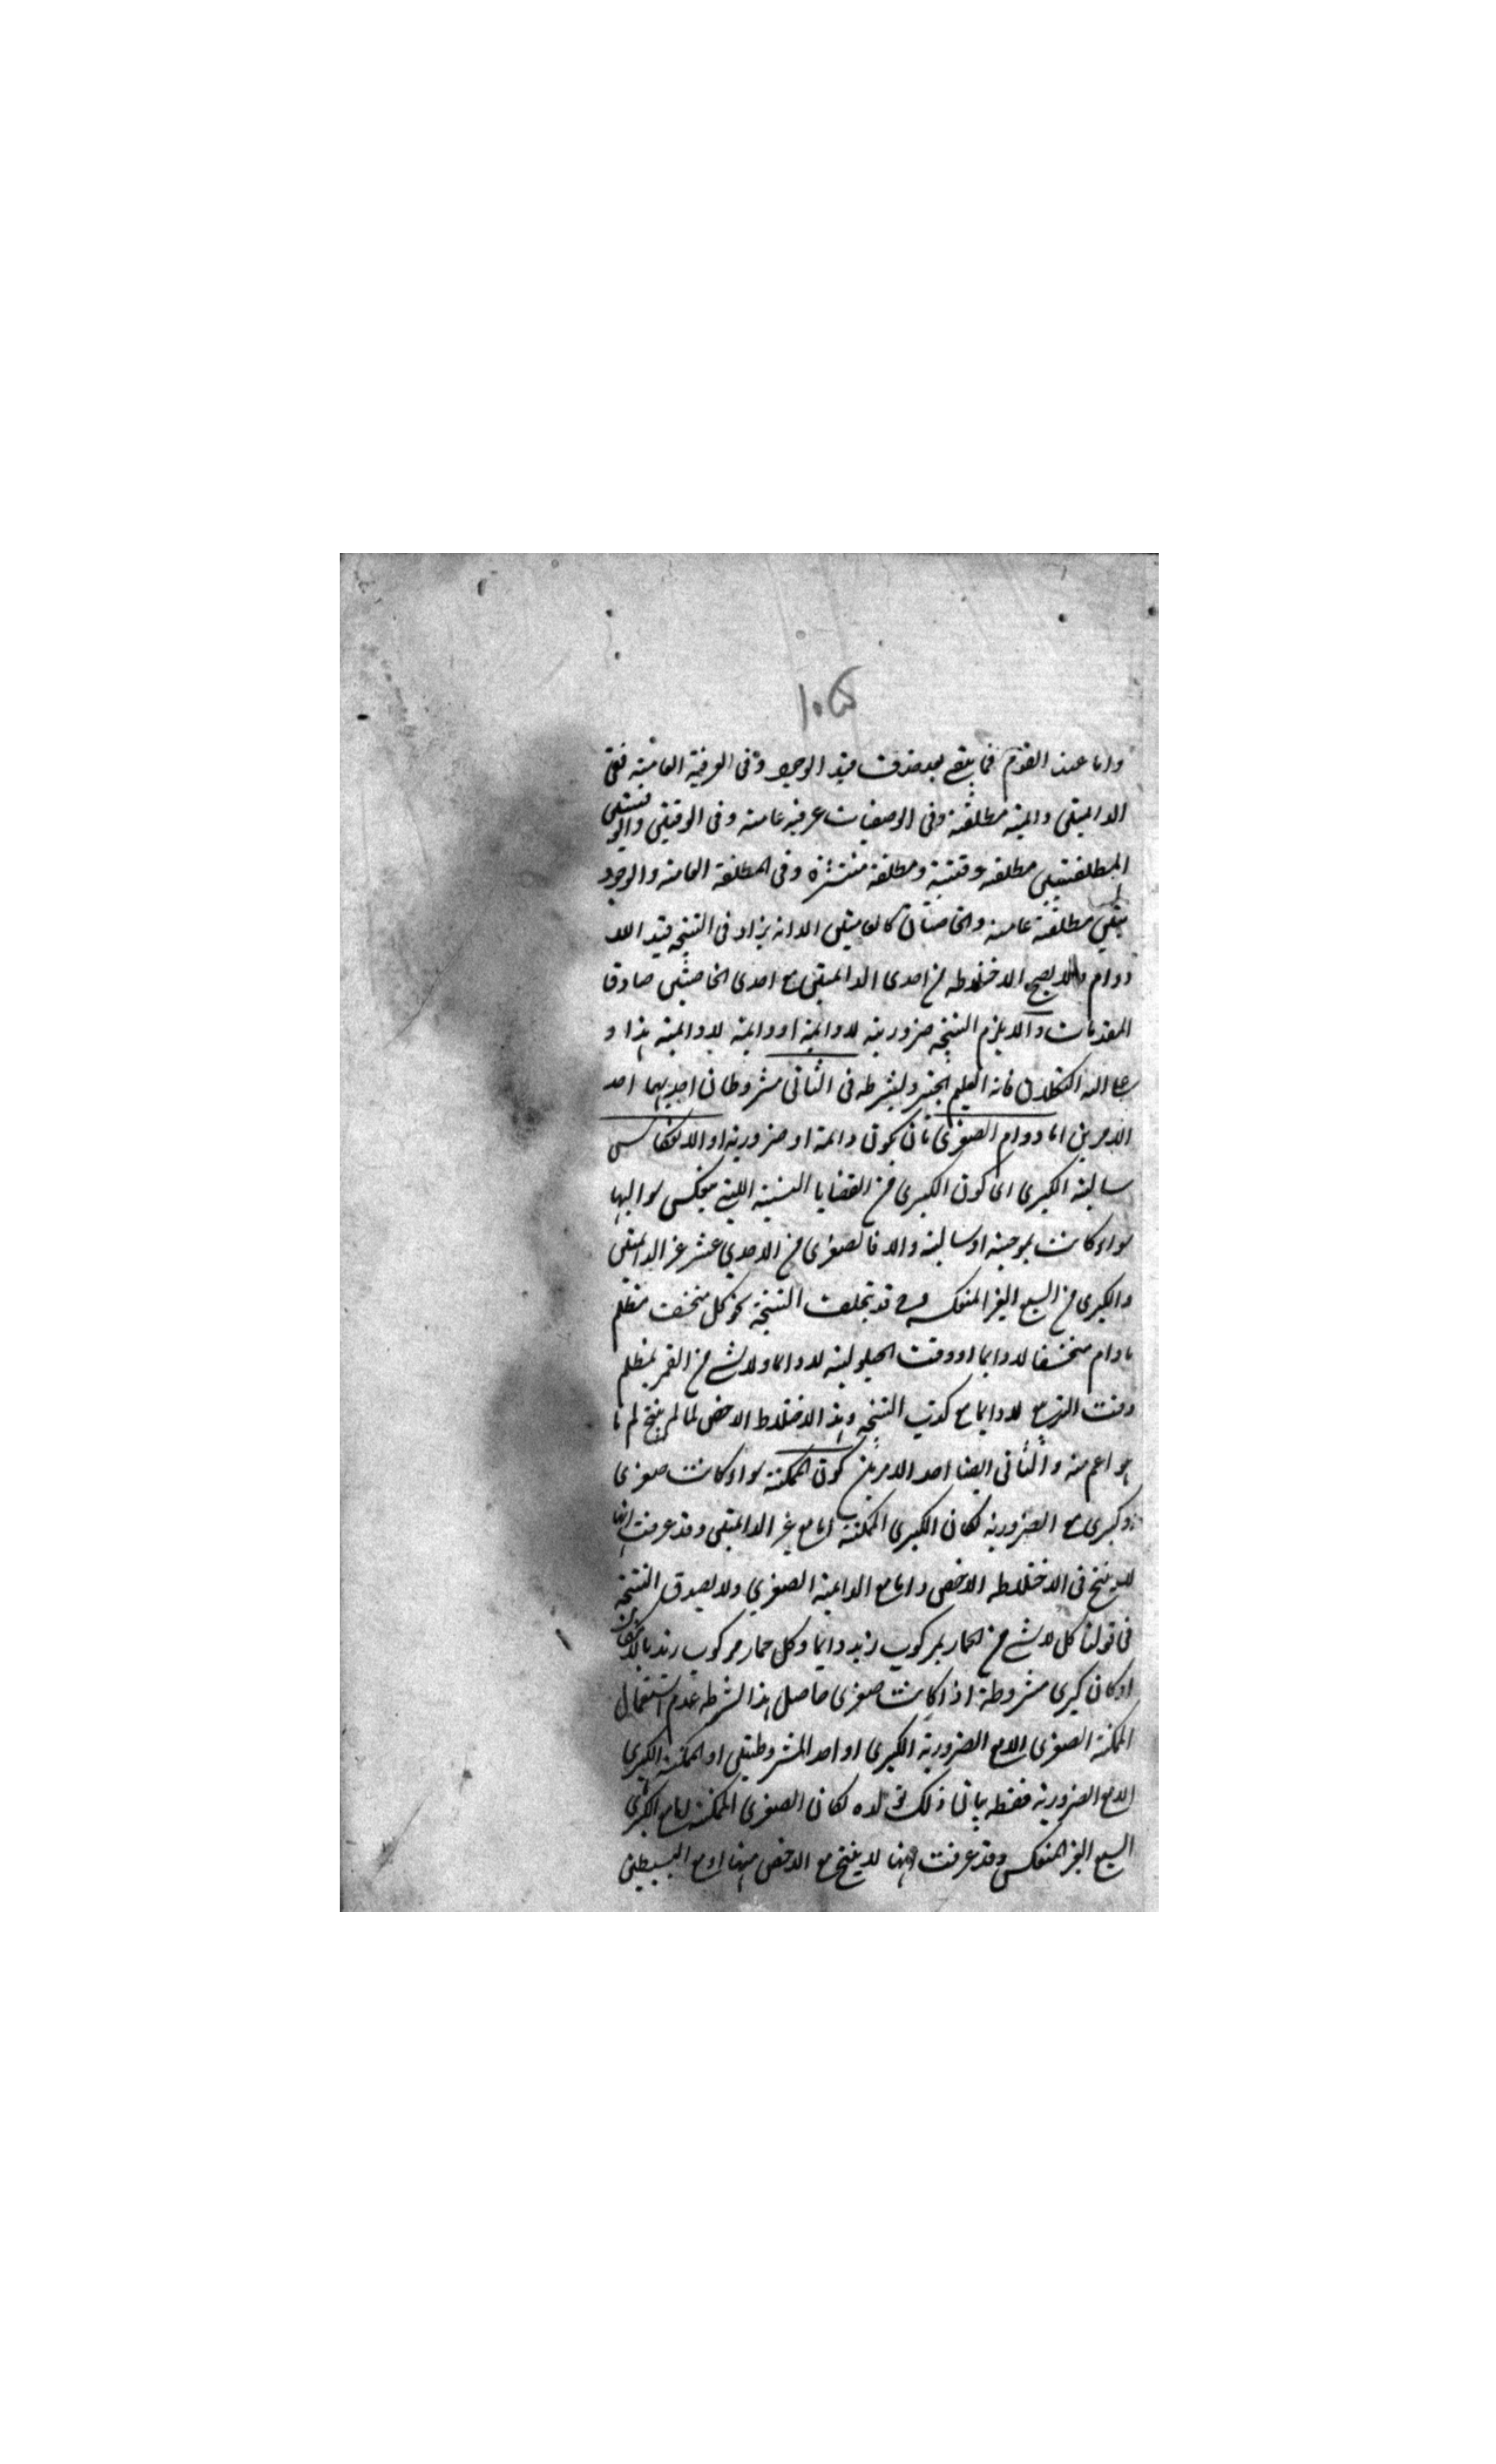 واما عند القوم فما يبقى بعد حذف قيد الوجود وفى العرفية العامة ففى
الدائمتين دائمة مطلقة وفى الوصفيات عرفية عامة وفى الوقتيتين والوقتيتين
المطلقتين مطلقة وقتية ومطلقة منتشرة وفى المطلقة العامة والوجود
يتين مطلقة عامة والخاصتان كالعامتين الا انه يزاد فى النتيجة قيد اللا
دوام ولا يصح الاختلاط من احدى الدائمتين مع احدى الخاصتين صادقا
المقدمات والا يلزم النتيجة ضرورية لا دائمة او دائمة لا دائمة هذا و
على الله التكلان فانه العليم الخبير وبشرطه فى الثانى مشروطان احديهما احد
الامرين اما دوام الصغرى بان يكون دائمة او ضرورية او الانعكاس
سالبة الكبرى اى كون الكبرى من القضايا الستة التى ينعكس سوالبها
سواء كانت موجبة او سالبة والا فالصغرى من الاحدى عشر غير الدائمتين
والكبرى من السبع الغير المنعكسة وح قد تختلف النتيجة نحو كل منخسف مظلم
ما دام منخسفا لا دائما او وقت الحيلولة لا دائما ولا شئ من القمر بمظلم
وقت التربيع لا دائما مع كذب النتيجة وهذا الاختلاط الاخص لما لم ينتج لم ما
هو اعم منه والثانى ايضا احد الامرين كون الممكنة سواء كانت صغرى
وكبرى مع الضرورية لكان الكبرى الممكنة اما مع غير الدائمتين وقد عرفت انها
لا ينتج فى الاختلاط الاخص واما مع الدائمة الصغرى ولا يصدق النتيجة
فى قولنا كل لا شئ من الحمار بمركوب زيد دائما وكل حمار مركوب زيد بالامكان
او كان كبرى مشروطة اذا كانت صغرى حاصل هذا الشرط عدم استعمال
الممكنة الصغرى الا مع الضرورية الكبرى او احد المشروطتين او الممكنة الكبرى
الا مع الضرورية فقط بيان ذلك لولاه لكان الصغرى الممكنة اما مع الكبرى
السبع الغير المنعكس وقد عرفت انها لا ينتج مع الاخص منها او مع البسيطين